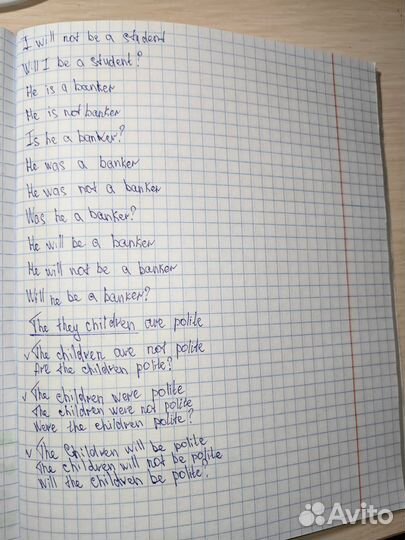 I will not be a student
Will I be a student?
He is a banker
He is not banker
Is he a banker?
He was a banker
He was not a banker
Was he a banker?
He will be a banker
He will not be a banker
Will he be a banker?
The they children are polite
The children are not polite
Are the children polite?
The children were polite
The children were not polite
Were the children polite?
The children will be polite
The children will not be polite
Will the children be polite?
Avito